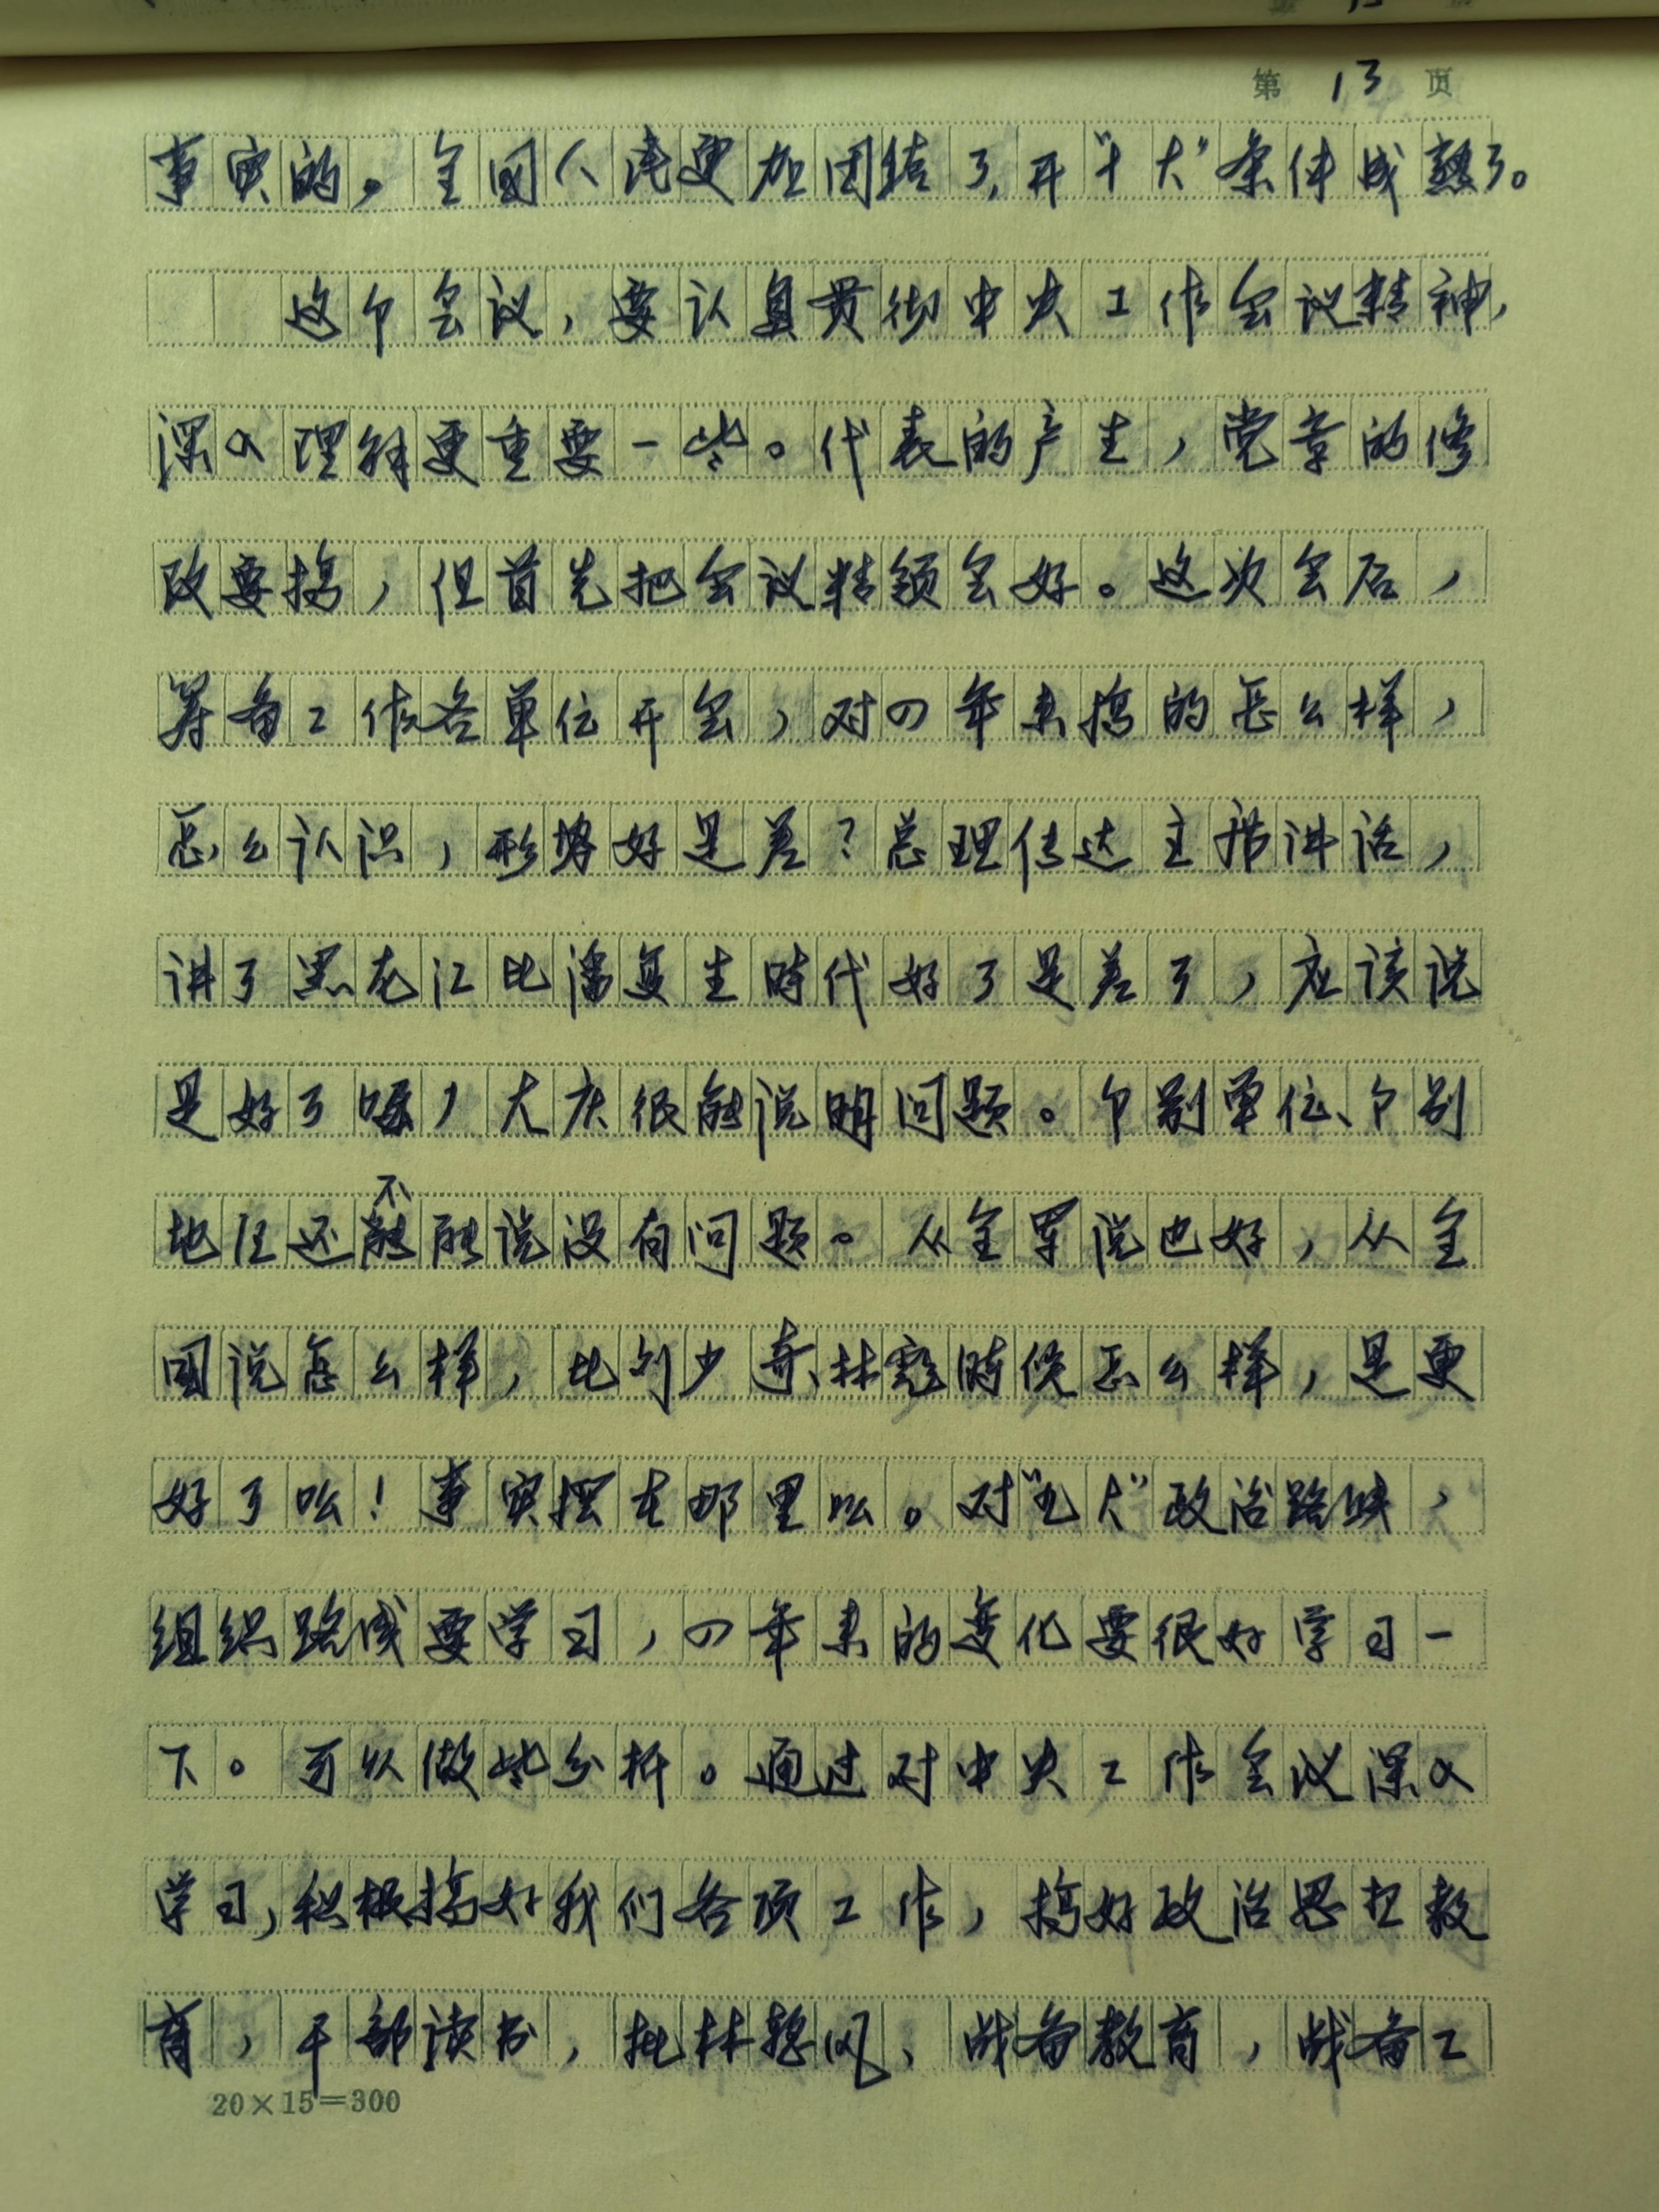 第 13 页
事实的。全国人民更加团结了,开“十大”条件成熟了。
这个会议,要认真贯彻中央工作会议精神,
深入理解更重要一些。代表的产生,党章的修
改要搞,但首先把会议精领会好。这次会后,
筹备工作各单位开会,对四年来搞的怎么样,
怎么认识,形势好是差?总理传达主席讲话,
讲了黑龙江比潘复生时代好了是差了,应该说
是好了嘛,大庆很能说明问题。个别单位、个别
地区还不能说没有问题。从全军说也好,从全
国说怎么样,比刘少奇、林彪时候怎么样,是更
好了么!事实摆在那里么。对“九大”政治路线,
组织路线要学习,四年来的变化要很好学习一
下。可以做些分析。通过对中央工作会议深入
学习,积极搞好我们各项工作,搞好政治思想教
育,干部读书,批林整风、战备教育,战备工
20×15=300